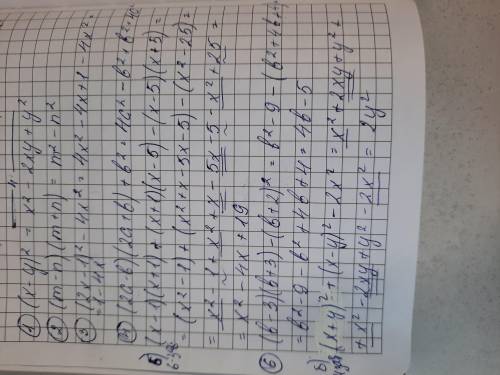 ① (x-y)² = x² - 2xy + y²
② (m-n)(m+n) = m² - n²
③ (2x-1)² - 4x² = 4x² - 4x + 1 - 4x² =
= 1 - 4x
④ (2a-b)(2a+b) + b² = 4a² - b² + b² = 4a²
5) (x-1)(x+1) + (x+1)(x-5) - (x-5)(x+5) =
= (x²-1) + (x²+x-5x-5) - (x²-25) =
= x² - 1 + x² + x - 5x - 5 - x² + 25 =
= x² - 4x + 19
⑥ (b-3)(b+3) - (b+2)² = b² - 9 - (b² + 4b +
= b² - 9 - b² + 4b + 4 = 4b - 5
(x+y)² + (x-y)² - 2x² = x² + 2xy + y² +
+ x² - 2xy + y² - 2x² = 2y²